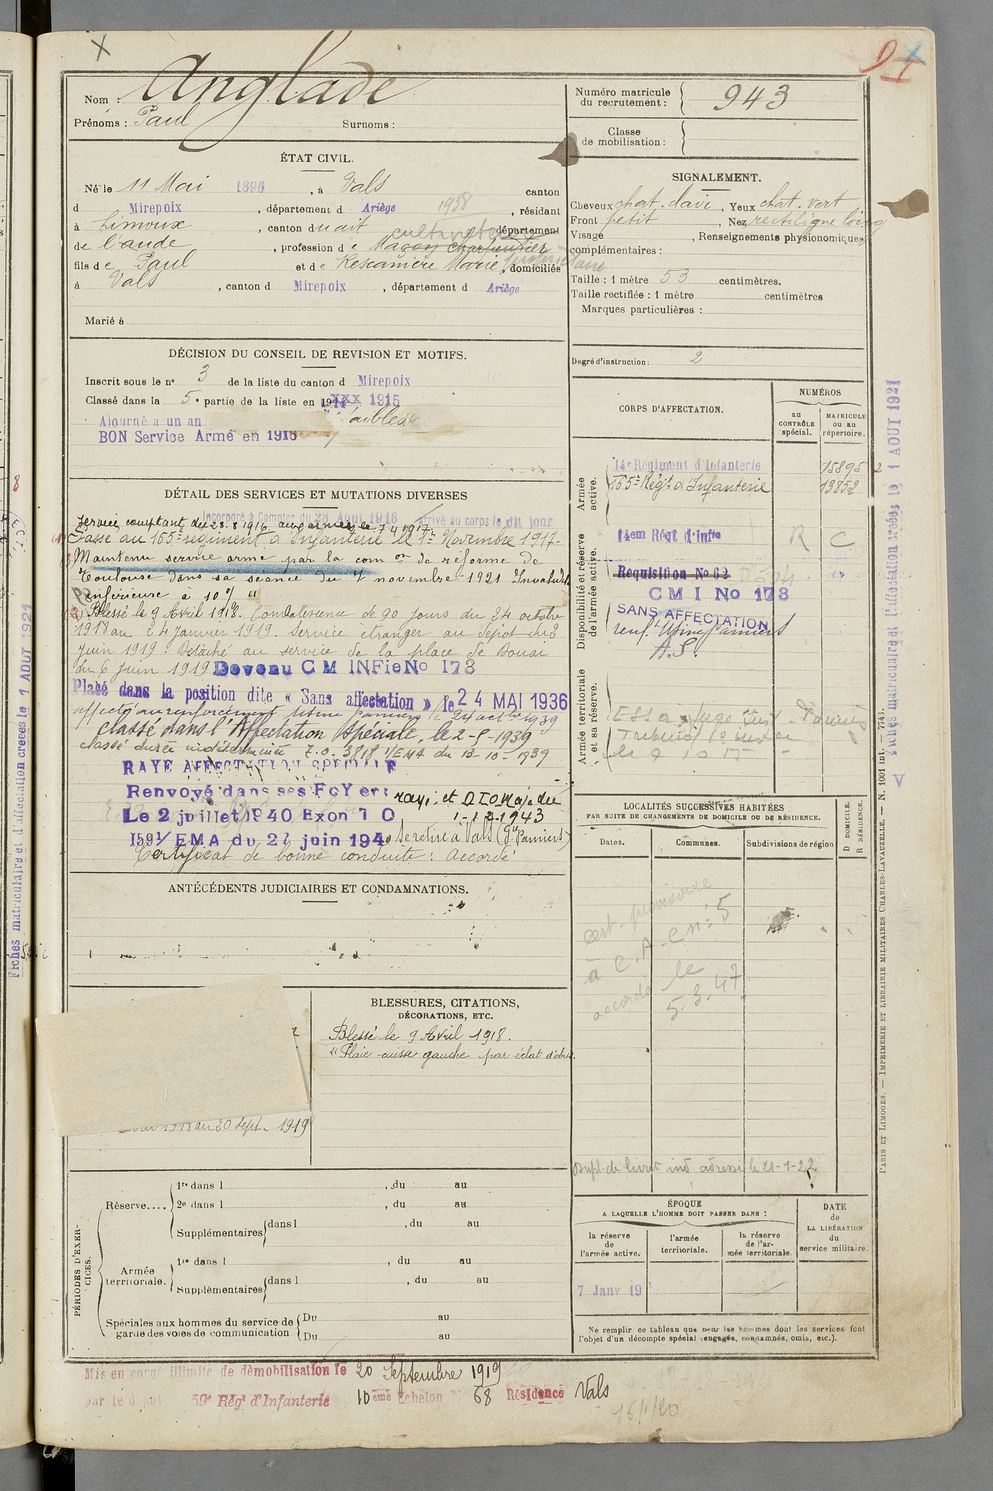 Nom : Anglade
Prénoms : Paul Surnoms :
Numéro matricule du recrutement : 943
Classe de mobilisation :
ÉTAT CIVIL.
Né le 11 Mai 1896, à Vals canton
d Mirepoix, département d Ariège, résidant
à Limoux, canton du dit département
de l'aude, profession de Maçon charpentier
cultivateur
1938
fils de Paul et de Rescanière Marie, domiciliés
à Vals, canton d Mirepoix, département d Ariège
Marié à
SIGNALEMENT.
Cheveux chat. clair, Yeux chat. vert
Front petit, Nez rectiligne long
Visage, Renseignements physionomiques
complémentaires :
Taille : 1 mètre 53 centimètres.
Taille rectifiée : 1 mètre centimètres
Marques particulières :
Degré d'instruction : 2
DÉCISION DU CONSEIL DE REVISION ET MOTIFS.
Inscrit sous le n° 3 de la liste du canton d Mirepoix
Classé dans la 5e partie de la liste en 1915
Ajourné à un an faiblesse
BON Service Armé en 1916
CORPS D'AFFECTATION.
NUMÉROS
au CONTRÔLE spécial.
MATRICULE ou au répertoire.
Armée active.
14e Régiment d'Infanterie 15895
155e Régt d'Infanterie 13852
Disponibilité et réserve de l'armée active.
14em Régt d'Inftie R C
Requisition No 62
C M I No 178
SANS AFFECTATION
renf. Usine Pamiers
A.S.
Armée territoriale et sa réserve.
DÉTAIL DES SERVICES ET MUTATIONS DIVERSES
Incorporé à Compter du 28 Aout 1916 arrivé au corps le dit jour
Service comptant du 28.8.1916
Passé au 155e régiment d'Infanterie le 1er Novembre 1917.
Maintenu service armé par la comon de réforme de
Toulouse dans sa séance du 4 novembre 1921 Invalidité
inférieure à 10%
Blessé le 9 Avril 1918. Convalescence de 90 jours du 24 octobre
1918 au 24 janvier 1919. Service étranger au dépôt du 3
juin 1919. Détaché au service de la place de Douai
du 6 juin 1919 Devenu C M INFie No 178
Placé dans la position dite « Sans affectation » le 24 MAI 1936
affecté au renforcement Usine Pamiers le 24 octbre 1939
Classé dans l'Affectation Spéciale, le 2-9-1939
classé durée indéterminée T.O. 3818 1/EMA du 13-10-1939
RAYE AFFECTATION SPECIALE
Renvoyé dans ses FOYers rayé
Le 2 juillet 1940 Exon 7 0 1-12-1943
1591/ EMA du 27 juin 1940 se retire à Vals (Pamiers)
Certificat de bonne conduite : accordé
ANTÉCÉDENTS JUDICIAIRES ET CONDAMNATIONS.
LOCALITÉS SUCCESSIVES HABITÉES
PAR SUITE DE CHANGEMENTS DE DOMICILE OU DE RÉSIDENCE.
Dates. Communes. Subdivisions de région
D DOMICILE.
R RÉSIDENCE.
cert. provisoire
à C.A.C n° 5
accordé le
5.3.47
BLESSURES, CITATIONS,
DÉCORATIONS, ETC.
Blessé le 9 Avril 1918.
"Plaie cuisse gauche par éclat d'obus.
au 20 Sept. 1919
Dupl. de livret ind adressé le 21-1-22
PÉRIODES D'EXERCICES.
Réserve....
1re dans l , du au
2e dans l , du au
Supplémentaires dans l , du au
Armée territoriale.
1re dans l , du au
Supplémentaires dans l , du au
Spéciales aux hommes du service de garde des voies de communication
Du au
Du au
ÉPOQUE
A LAQUELLE L'HOMME DOIT PASSER DANS :
la réserve de l'armée active.
l'armée territoriale.
la réserve de l'armée territoriale.
DATE de LA LIBÉRATION du service militaire.
7 Janv 19
Ne remplir ce tableau que pour les hommes dont les services font
l'objet d'un décompte spécial (engagés, condamnés, omis, etc.).
Mis en congé illimité de démobilisation le 20 Septembre 1919
par le dépôt 59e Rég. d'Infanterie 10eme Echelon No 68 Résidence Vals
PARIS ET LIMOGES. — IMPRIMERIE ET LIBRAIRIE MILITAIRES CHARLES-LAVAUZELLE. — N. 1001 int.
Fiches matriculaire et d'affectation créées le 1 AOUT 1921
Fiches matriculaire et d'affectation créées le 1 AOUT 1921